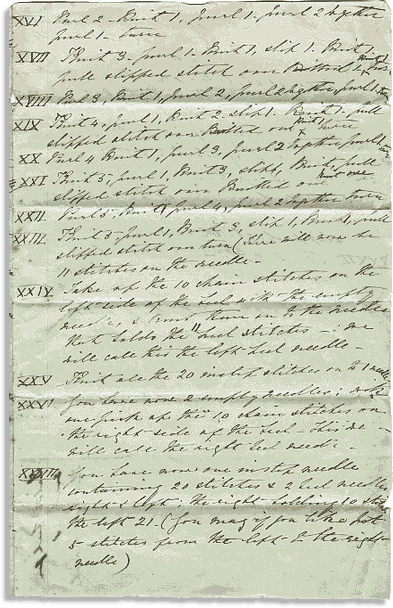 XVI Purl 2. Knit 1, purl 1. purl 2 together
purl 1. turn
XVII Knit 3. purl 1. Knit 1, slip 1. Knit 1.
pull slipped stitch over Knitted
XVIII Purl 3, Knit 1, purl 2, purl 2 together, purl 1,
XIX Knit 4, purl 1, Knit 2 slip 1. Knit 1. pull
slipped stitch over Knitted one Knit 1 turn
XX Purl 4 Knit 1, purl 3, purl 2 together purl 1
XXI Knit 5, purl 1, Knit 3, slip 1, Knit 1, pull
slipped stitch over Knitted one Knit one
XXII Purl 5, Knit 1, purl 4, purl 2 together turn
XXIII Knit 5 purl 1, Knit 3, slip 1, Knit 1, pull
slipped stitch over turn (There will now be
11 stitches on the needle.
XXIV Take up the 10 chain stitches on the
left side of the heel with the empty
needle, & them on to the needle
that holds the 11 heel stitches - we
will call this the left heel needle -
XXV Knit all the 20 instep stitches on to 1 needle
XXVI You have now 2 empty needles; with
one pick up the 10 chain stitches on
the right side of the heel - This we
will call the right heel needle -
You have now one instep needle
containing 20 stitches & 2 heel needles
right & left. the right holding 10
the left 21. (you may if you like put
5 stitches from the left to the right
needle)